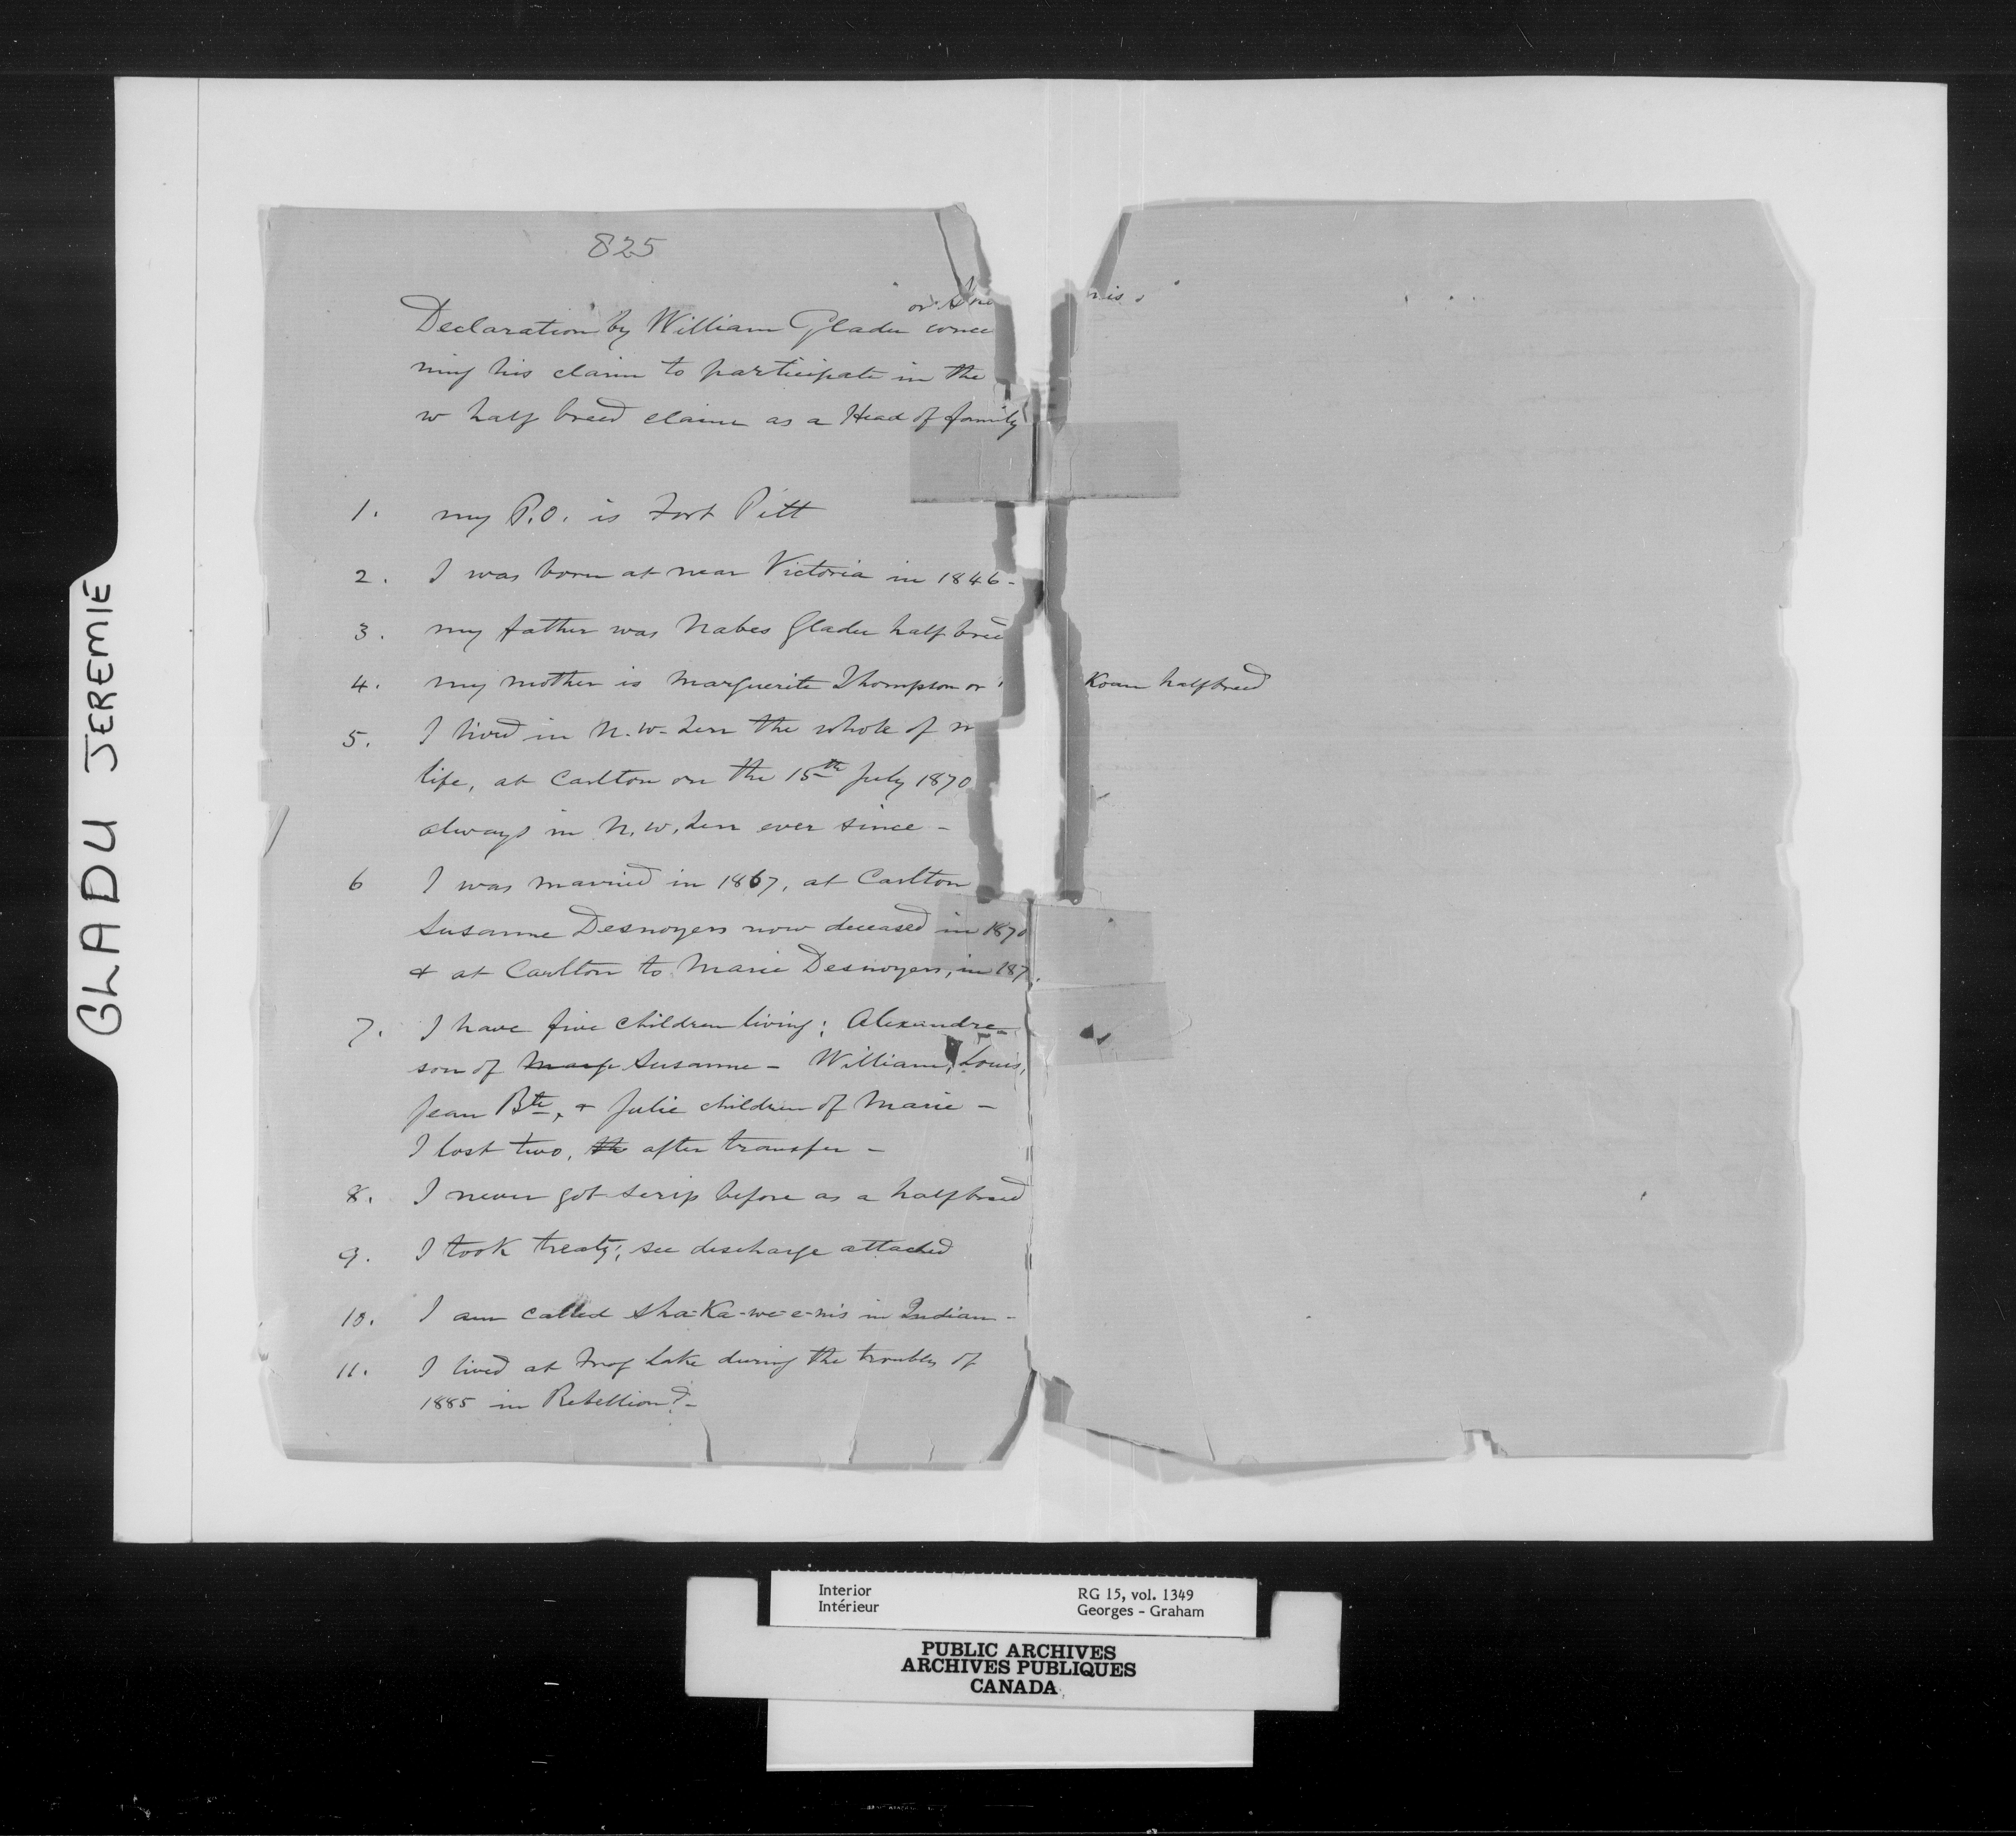 825
or Sha nis
Declaration by William Gladu conce
ning his claim to participate in the
w half breed claim as a Head of family
1. my P.O. is Fort Pitt
2. I was born at near Victoria in 1846-
3. my father was Nabes Gladu half bree
4. my mother is Marguerite Thompson or Koan halfbreed
5. I lived in N.W. Terr the whole of m
life, at Carlton on the 15th July 1870
always in N.W. Terr ever since -
6 I was married in 1867, at Carlton
Susanne Desnoyers now deceased in 1870
& at Carlton to Marie Desnoyers, in 187
7. I have five children living: Alexandre
son of Marg Susanne - William, Louis,
Jean Bte, & Julie children of Marie -
I lost two, th after transfer -
8. I never got scrip before as a halfbreed
9. I took treaty; see discharge attached
10. I am called Sha-Ka-we-e-nis in Indian -
11. I lived at Frog Lake during the troubles of
1885 in Rebellion? -
GLADU JEREMIE
Interior RG 15, vol. 1349
Intérieur Georges - Graham
PUBLIC ARCHIVES
ARCHIVES PUBLIQUES
CANADA